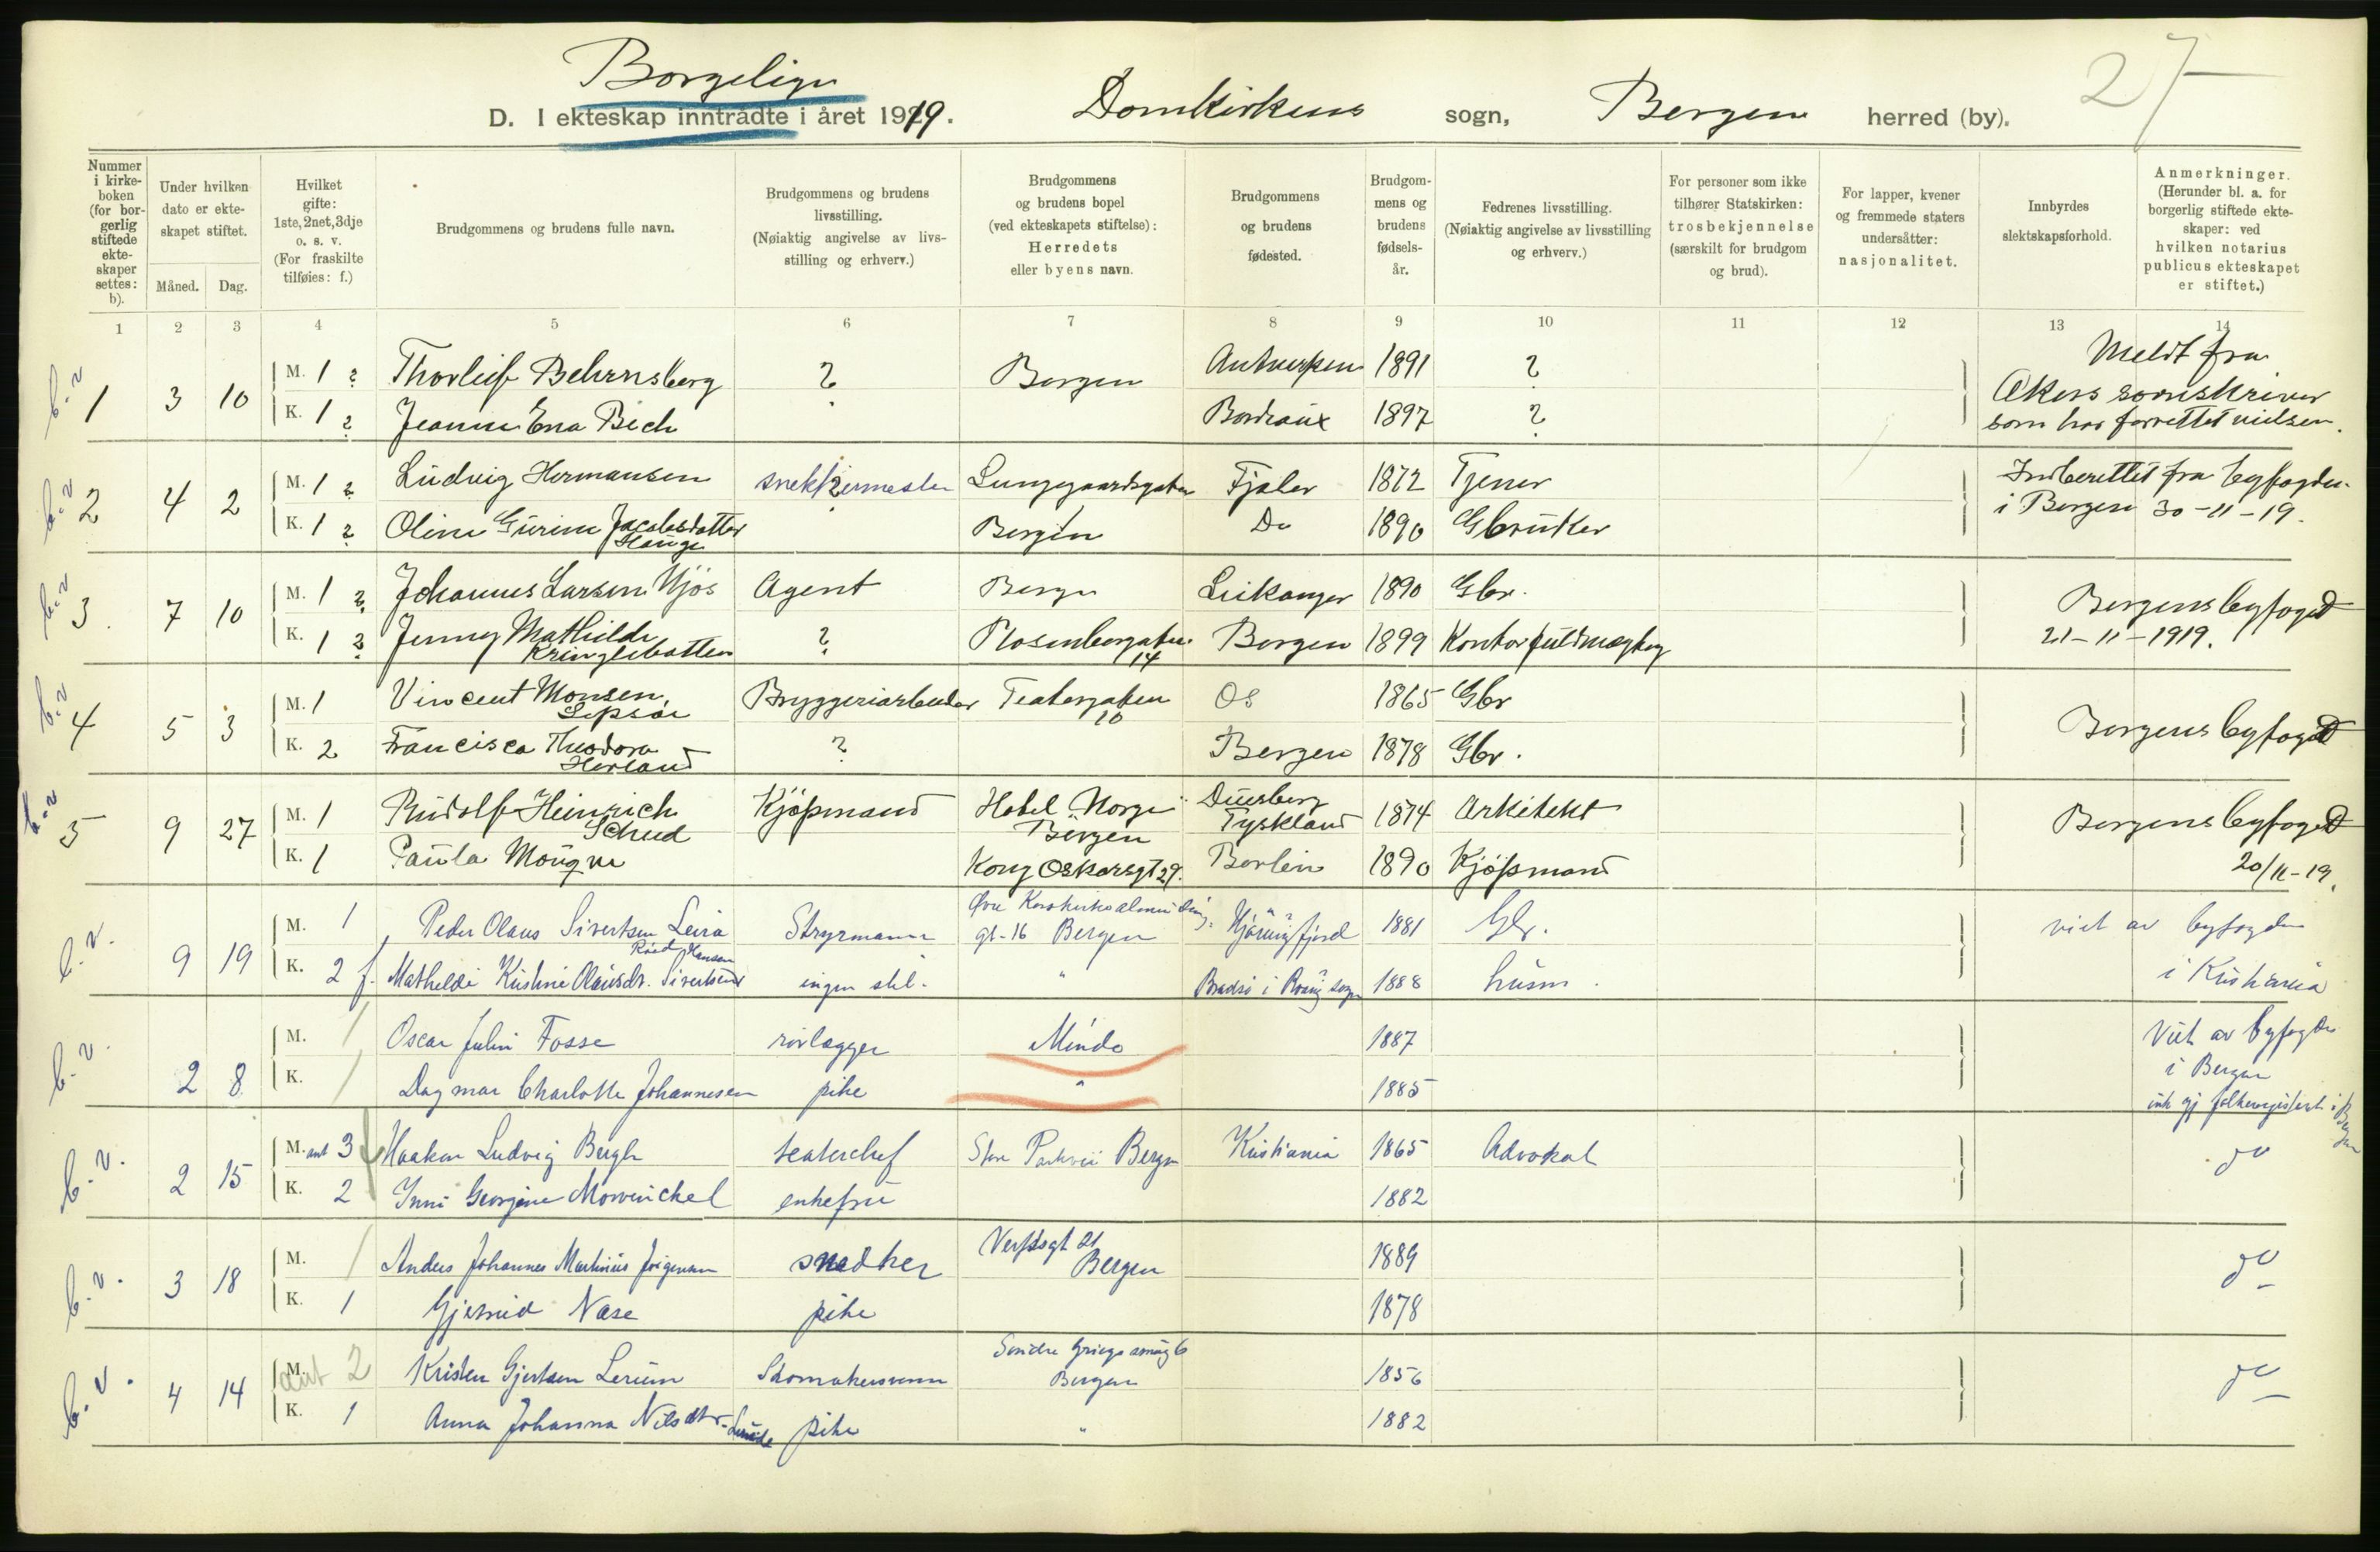 Borgelige
27
D. I ekteskap inntrådte i året 1919. Domkirkens sogn, Bergen herred (by).
Nummer i kirkeboken (for borgerlig stiftede ekteskaper settes: b).
Under hvilken dato er ekteskapet stiftet.
Måned. Dag.
Hvilket gifte: 1ste, 2net, 3dje o. s. v. (For fraskilte tilføies: f.)
Brudgommens og brudens fulle navn.
Brudgommens og brudens livsstilling. (Nøiaktig angivelse av livsstilling og erhverv.)
Brudgommens og brudens bopel (ved ekteskapets stiftelse): Herredets eller byens navn.
Brudgommens og brudens fødested.
Brudgommens og brudens fødselsår.
Fedrenes livsstilling. (Nøiaktig angivelse av livsstilling og erhverv.)
For personer som ikke tilhører Statskirken: trosbekjennelse (særskilt for brudgom og brud).
For lapper, kvener og fremmede staters undersåtter: nasjonalitet.
Innbyrdes slektskapsforhold.
Anmerkninger. (Herunder bl. a. for borgerlig stiftede ekteskaper: ved hvilken notarius publicus ekteskapet er stiftet.)
1 2 3 4 5 6 7 8 9 10 11 12 13 14
b.v 1 3 10 M. 1 ? Thorleif Behrnsberg ? Bergen Antwerpen 1891 ? Meldt fra
K. 1 ? Jeanne Ena Bech Bordeaux 1897 ? Akers sorenskriver
som har forrettet vielsen.
b.v 2 4 2 M. 1 ? Ludvig Hermansen snekkermester Lungegaardsgaten Fjaler 1872 Tjener Indberettet fra byfogden
K. 1 ? Oline Gurine Jacobsdatter Hauge Bergen Do 1890 Gbruker i Bergen 30-11-19.
b.v 3. 7 10 M. 1 ? Johannes Larsen Njøs Agent Bergen Leikanger 1890 Gbr. Bergens byfoged
K. 1 ? Jenny Mathilde Kringlebotten ? Rosenberggaten 14 Bergen 1899 Kontorfuldmægtig 21-11-1919.
b.v 4 5 3 M. 1 Vincent Monsen Lepsøe Bryggeriarbeider Teatergaten 10 Os 1865 Gbr Bergens byfoged
K. 2 Francisca Theodora Herland ? Bergen 1878 Gbr.
b.v 5 9 27 M. 1 Rudolf Heinrich Schud Kjøpmand Hotel Norge Bergen Duisberg Tyskland 1874 Arkitekt Bergens byfoged
K. 1 Paula Kong Oskarsgt 29. Berlin 1890 Kjøpmand 20/11-19.
b.v. 9 19 M. 1 Peder Olaus Sivertsen Leira Styrmann Øvre Korskirkealmending gt-16 Bergen Hjørungfjord 1881 Gbr. viet av byfogden
K. 2 f. Mathilde Kristine Olausdr. Sivertsen Hansen ingen stil. " 1888 husm. i Kristiania
b.v. 2 8 M. 1 Oscar Julin Fosse rørlægger Minde 1887 Viet av byfogden
K. 1 Dagmar Charlotte Johannesen pike " 1885 i Bergen
ink gj folkeregisteret i Bergen
b.v. 2 15 M. ant 3 Haakon Ludvig Bergh teaterchef Store Parkvei Bergen Kristiania 1865 Advokat do
K. 2 Inni Georgine Mowinckel enkefru 1882
b.v. 3 18 M. 1 Anders Johannes Martinus Jørgensen snedker Verftsgt 21 Bergen 1889 do
K. 1 Gjertrud Nase pike 1878
b.v. 4 14 M. ant 2 Kristen Gjertsen Lerum Skomakersvenn Søndre Griegsmug 6 Bergen 1856 do
K. 1 Anna Johanna Nilsdtr. Lunde pike " 1882